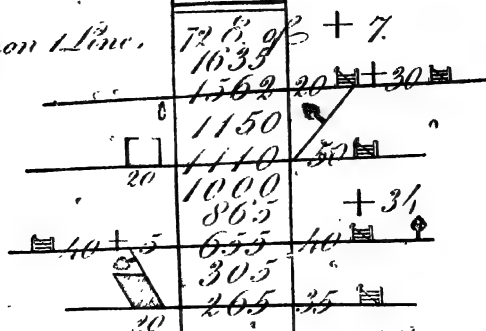 on 1 Line. 728 + 7.
1635
1562 20 + 30
1150
20 1110 50
1000
865 + 34
40 + 5 655 40
305
20 265 35